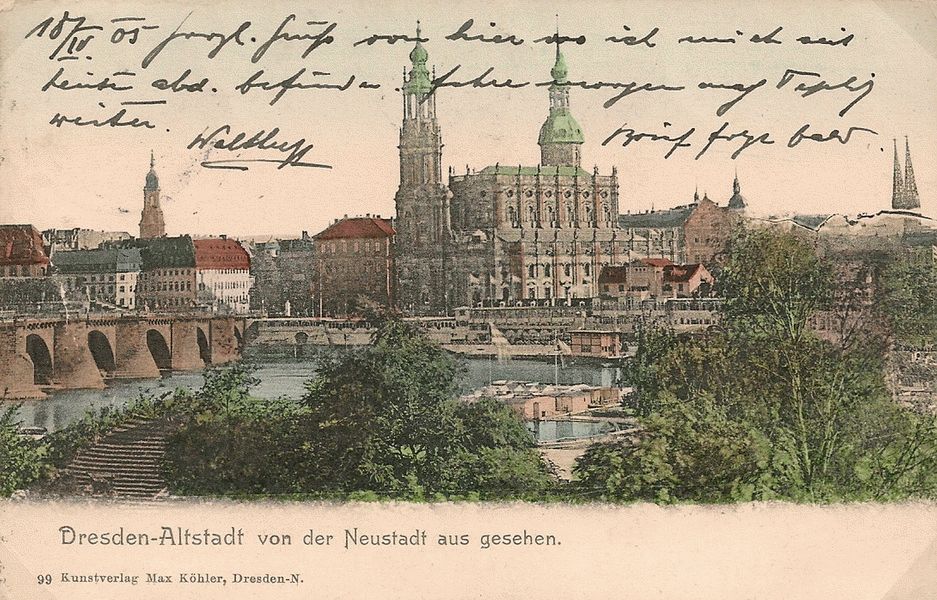 18/IV 05 herzl. Gruß von hier wo ich mich seit
heute abd. befinde fahre morgen nach Teplitz
weiter.
Brief folgt bald
Dresden-Altstadt von der Neustadt aus gesehen.
99 Kunstverlag Max Köhler, Dresden-N.